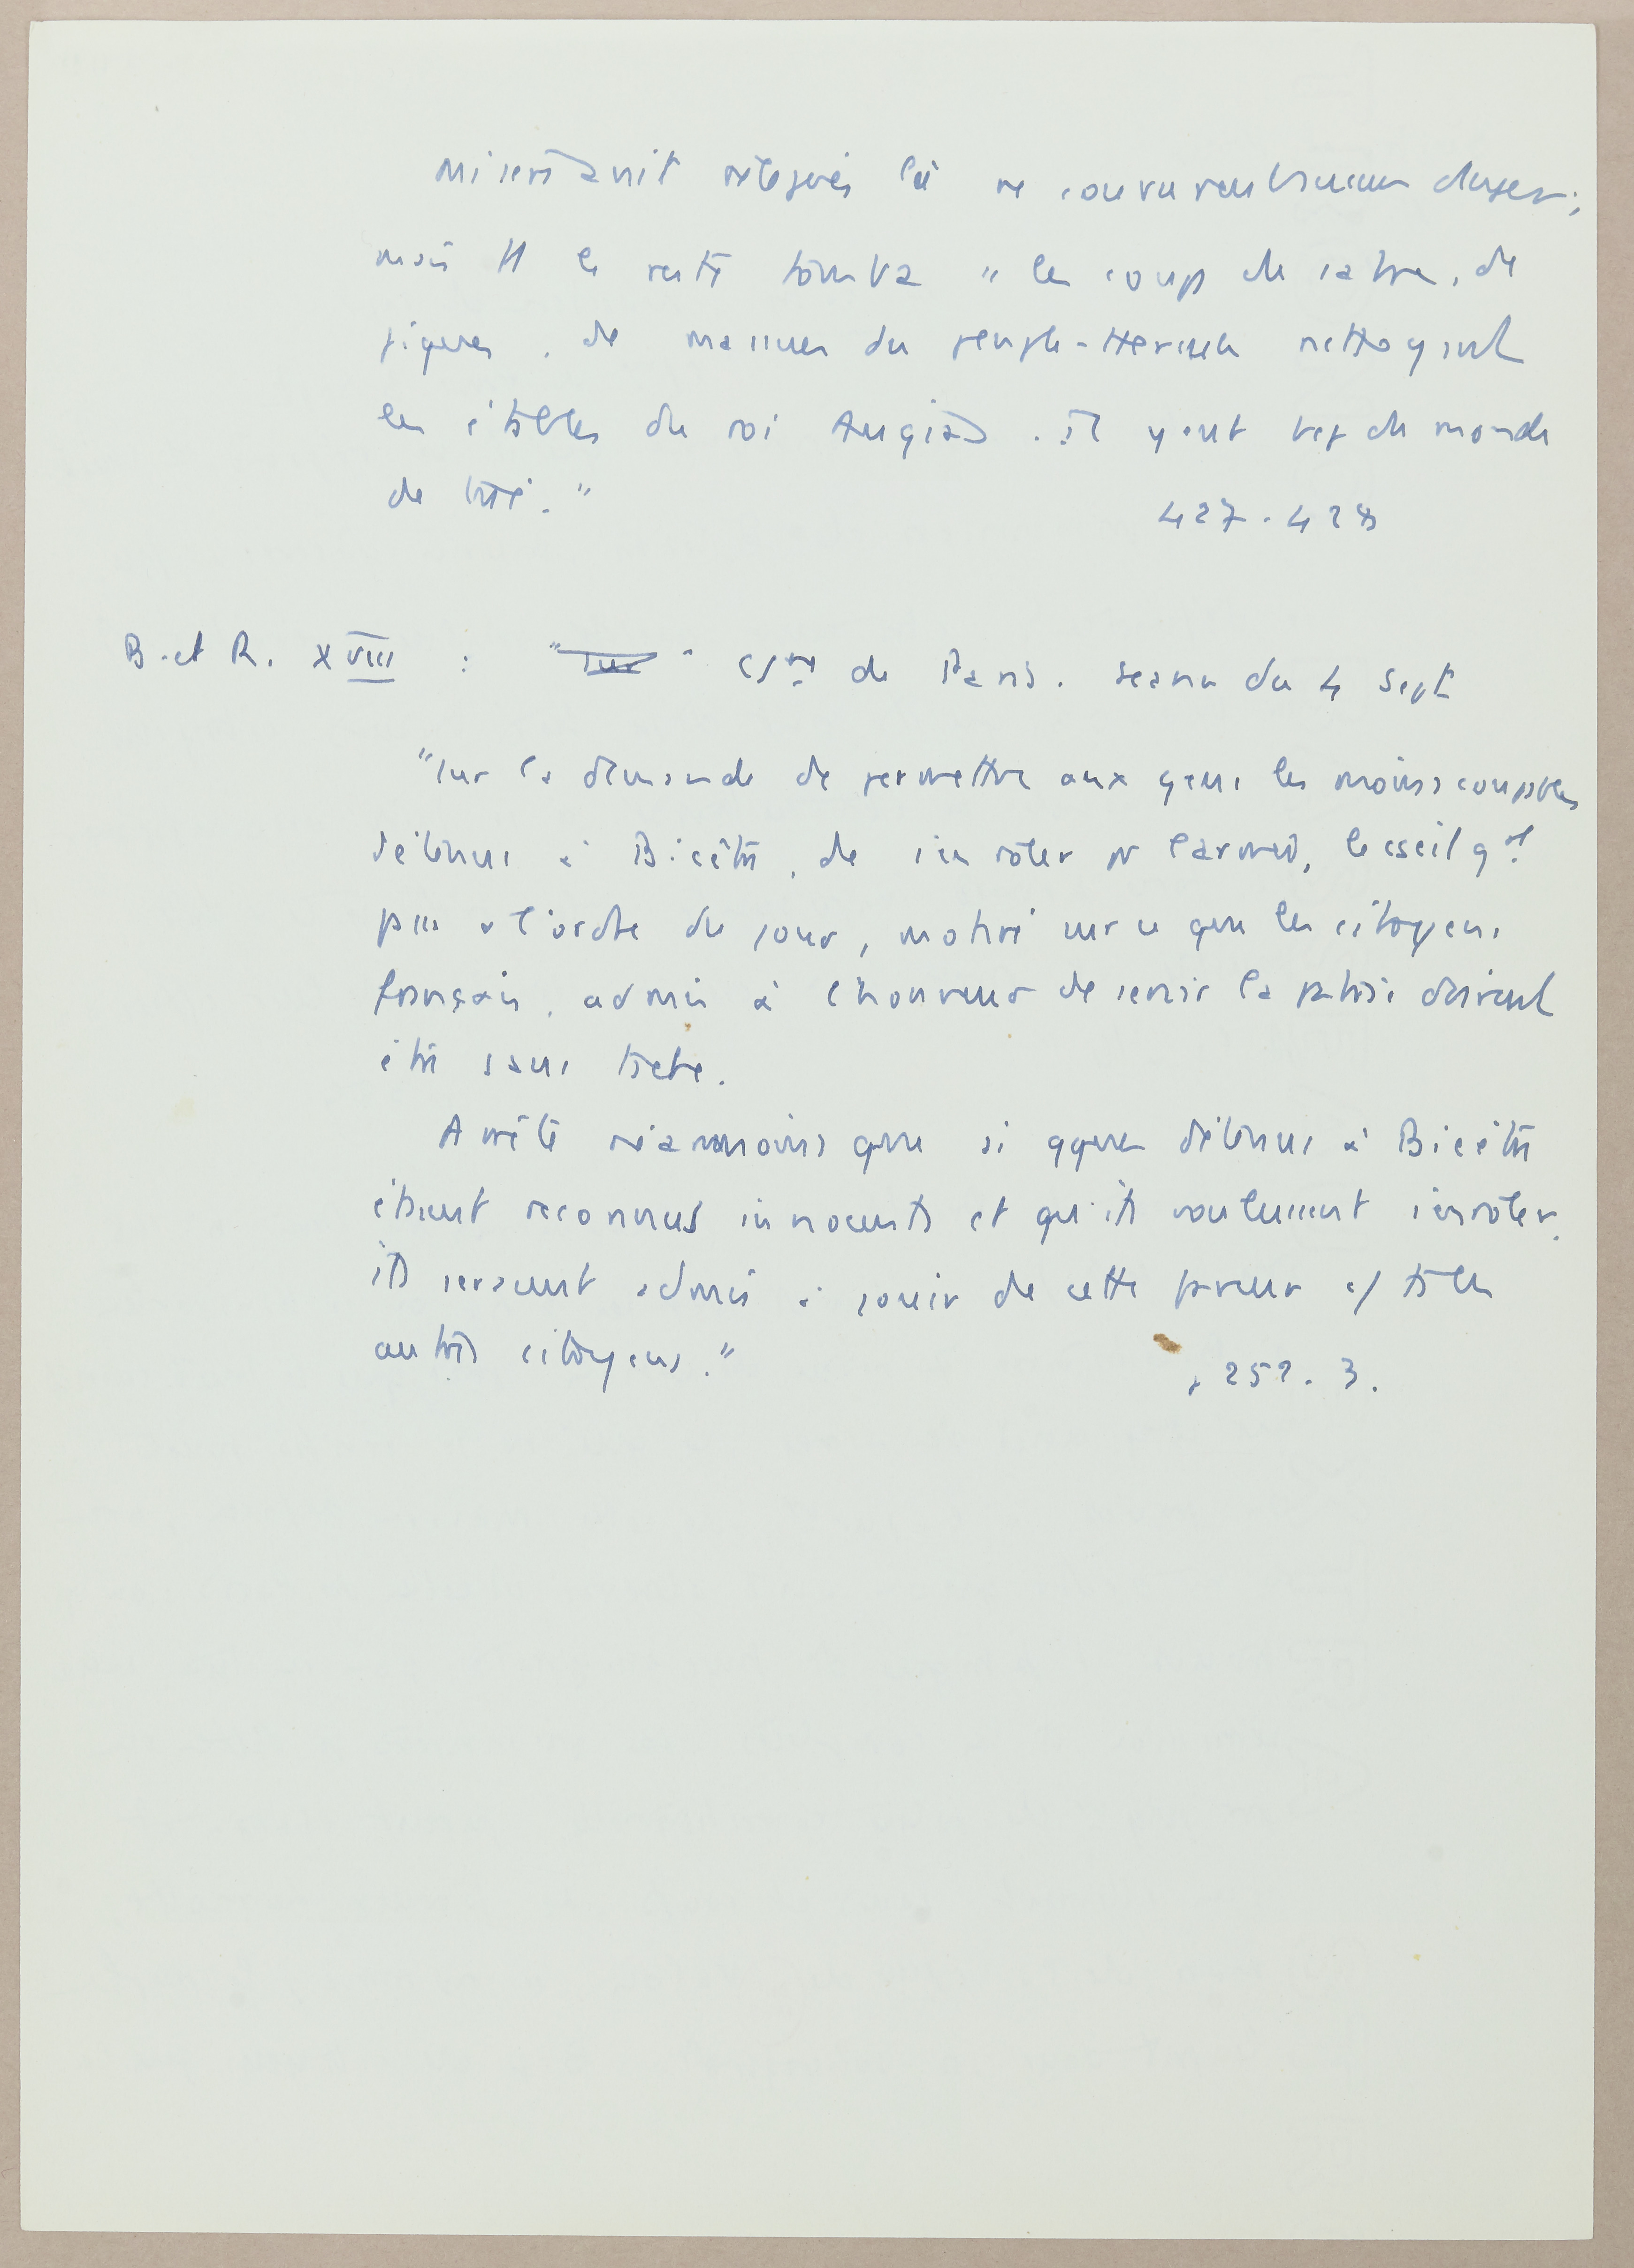 misérait relégués là ne coururent aucun danger;
mais tt le reste tomba s les coups de sabre, de
piques, de massues du peuple-Hercule nettoyant
les étables du roi Augias. Il y eut bcp de monde
de tué."
427.428
B. et R. XVIII : de Paris. séance du 4 Sept
"Sur la demande de permettre aux gens les moins coupables
détenus à Bicêtre, de s'enrôler pr l'armée, le cseil gal
passe à l'ordre du jour, motivé sur ce que les citoyens
français, admis à l'honneur de servir la patrie doivent
être sans tache.
Arrête néanmoins que si qques détenus à Bicêtre
étaient reconnus innocents et qu'ils voulussent s'enrôler,
ils seraient admis à jouir de cette faveur cs ts les
autres citoyens."
p 252. 3.